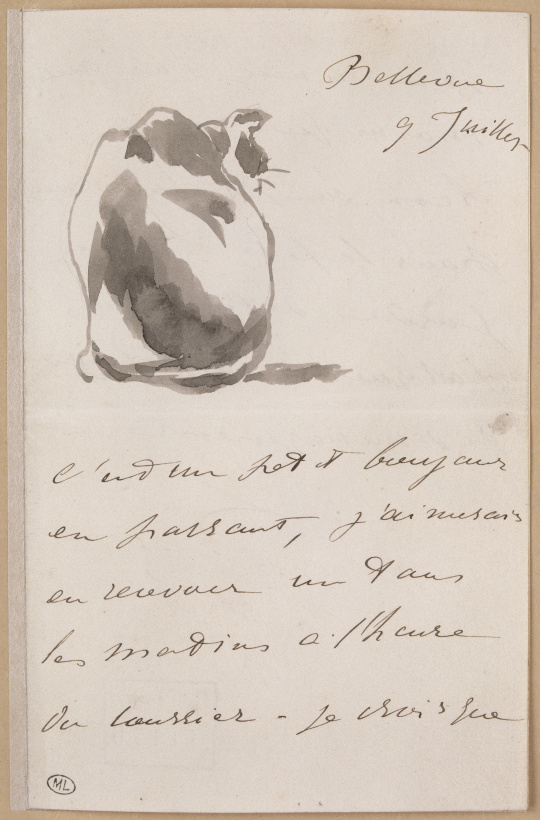 Bellevue
9 Juillet
c'est un petit bonjour
en passant, j'aimerais
en recevoir un tous
les matins a l'heure
du courrier - je crois que
ML